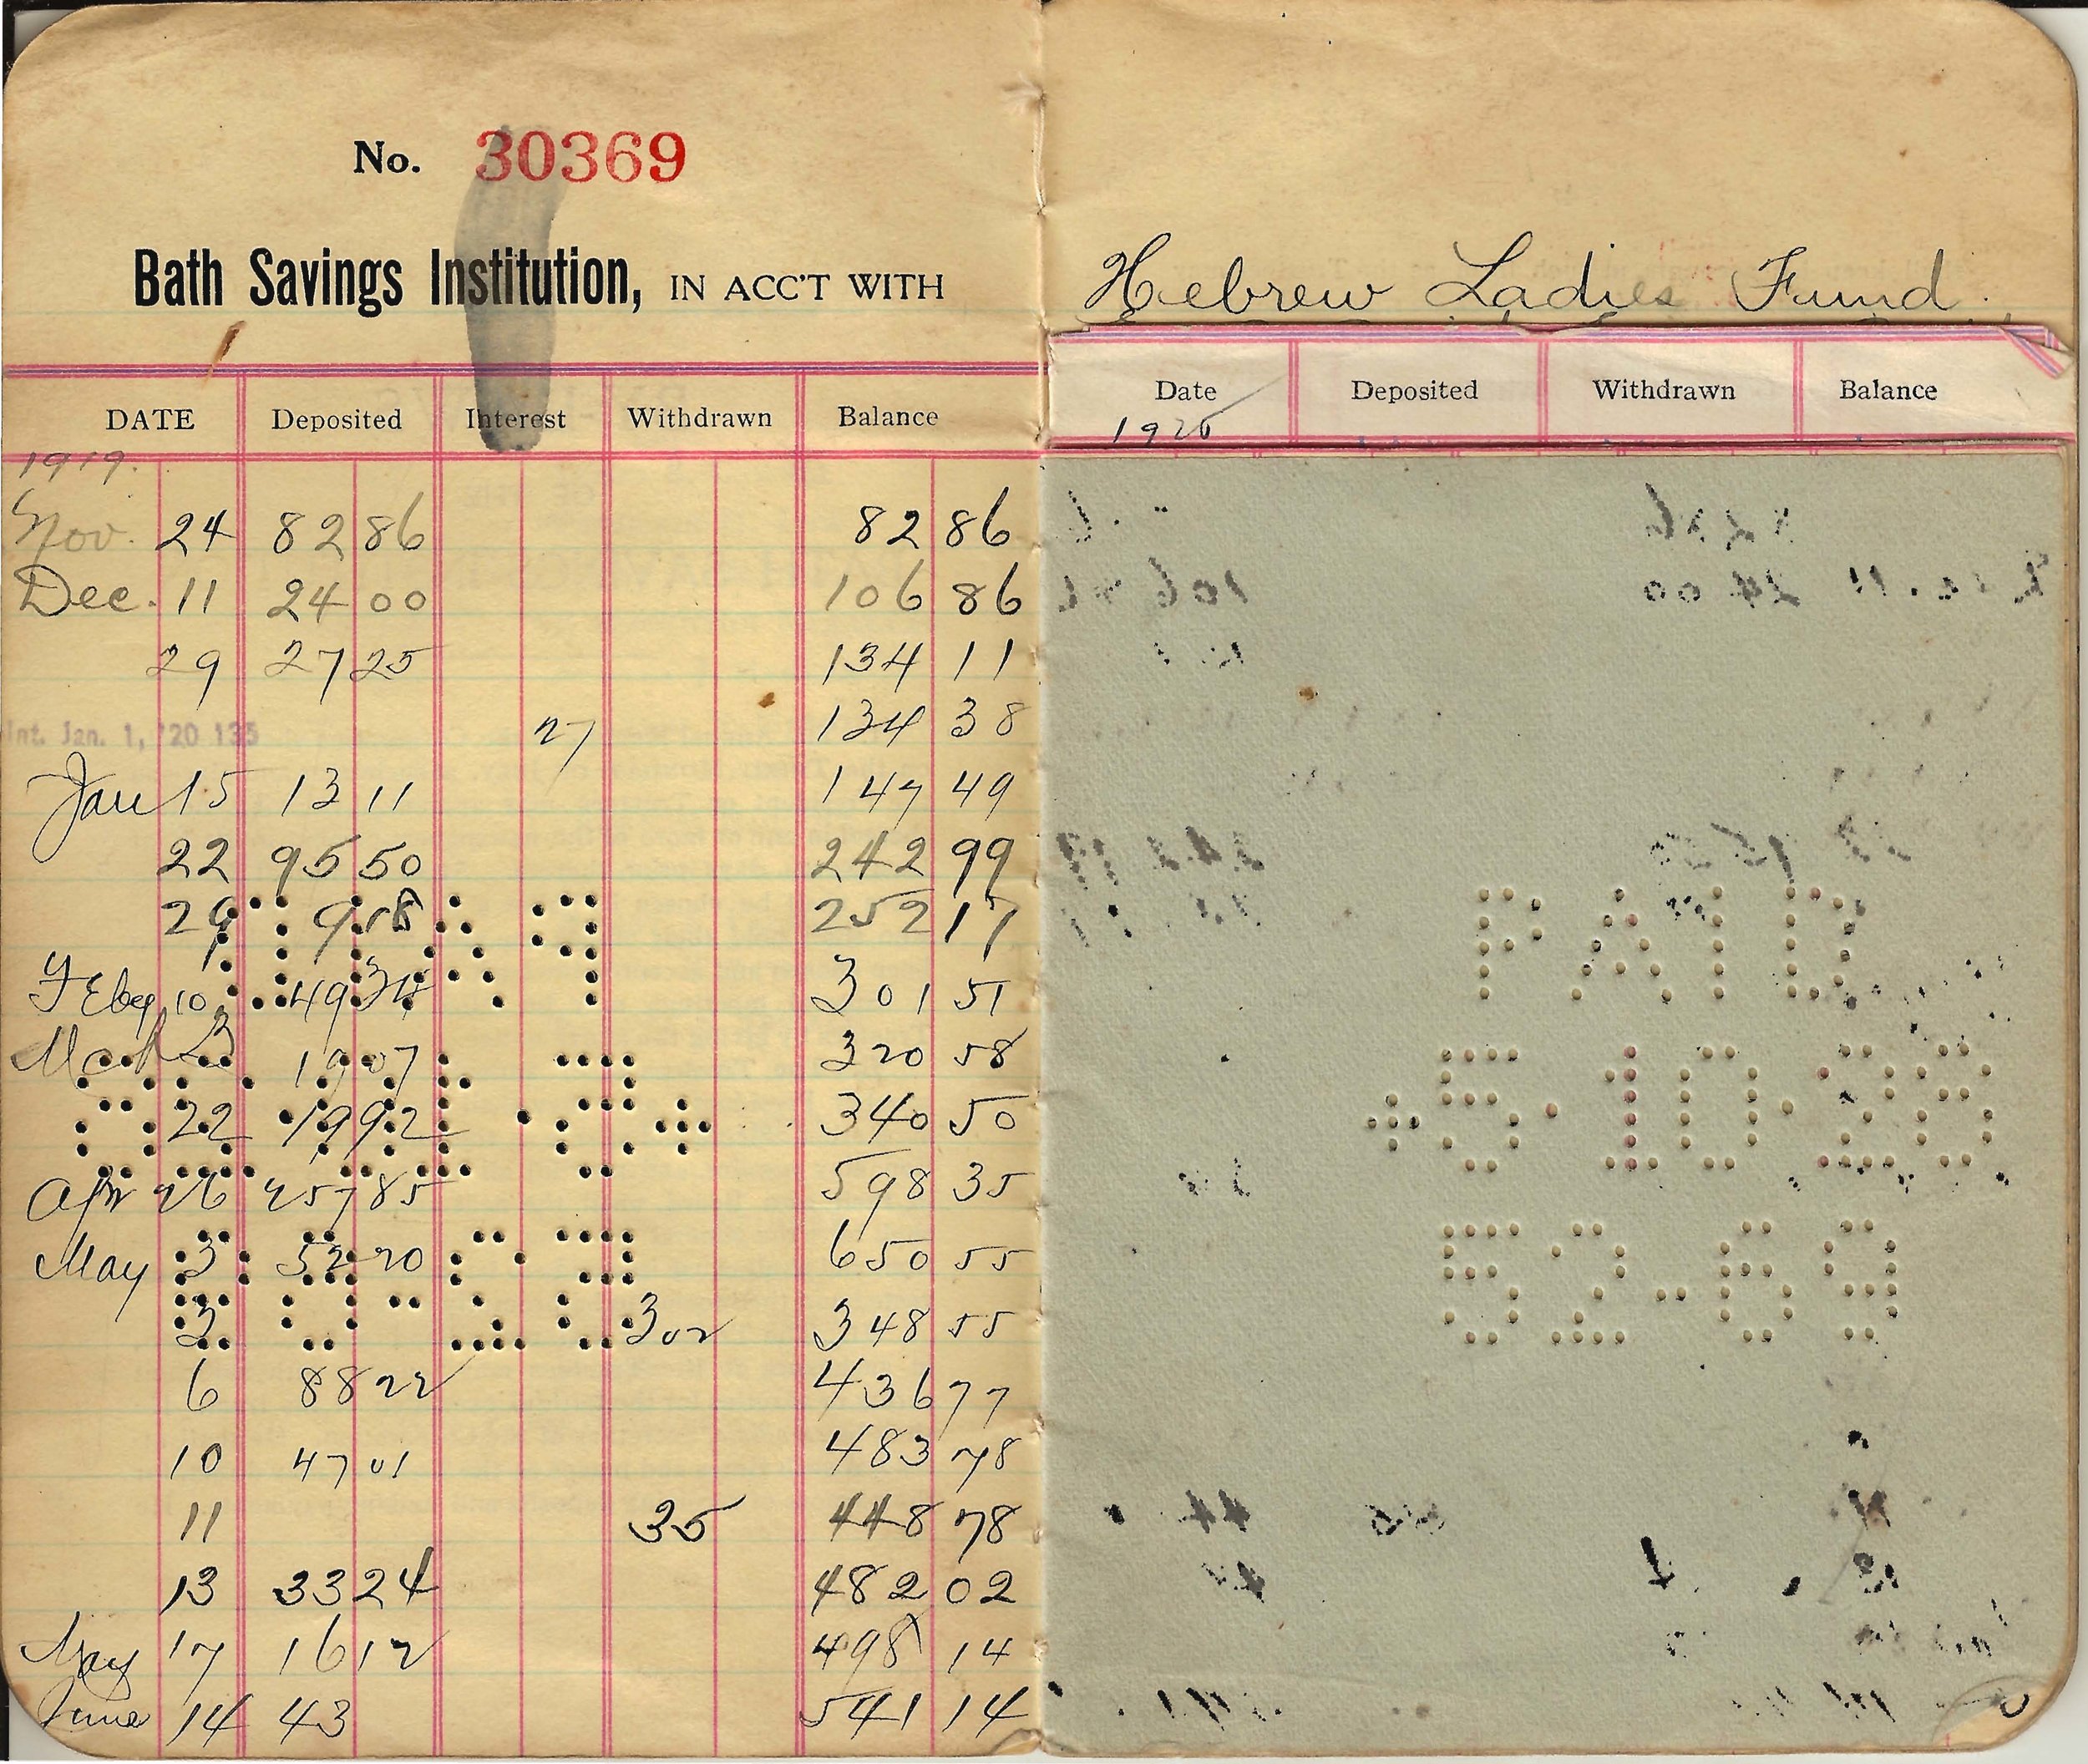 No. 30369
Bath Savings Institution, IN ACC'T WITH
DATE Deposited Interest Withdrawn Balance
1919.
Nov. 24 82 86 82 86
Dec. 11 24 00 106 86
29 27 25 134 11
Int. Jan. 1, '20 135 27 134 38
Jan 15 13 11 147 49
22 95 50 242 99
29 9 18 252 17
Feby 10 49 34 301 51
Mch 3 19 07 320 58
22 19 92 340 50
Apr 26 257 85 598 35
May 3 52 20 650 55
3 302 348 55
6 88 22 436 77
10 47 01 483 78
11 35 448 78
13 33 24 482 02
May 17 16 12 498 14
June 14 43 541 14
Hebrew Ladies Fund.
Date Deposited Withdrawn Balance
1926
PAID
+5·10·28
52-69